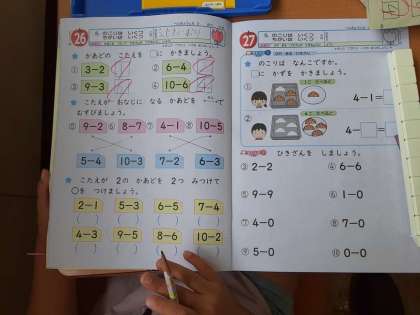 26
5. のこりは いくつ
ちがいは いくつ
★ かあどの こたえを □に かきましょう。
① 3-2 ② 6-4
③ 9-3 ④ 10-6
★ こたえが おなじに なる かあどを
むすびましょう。
⑤ 9-2 ⑥ 8-7 ⑦ 4-1 ⑧ 10-5
5-4 10-3 7-2 6-3
★ こたえが 2の かあどを 2つ みつけて
○を つけましょう。
2-1 5-3 6-5 7-4
( ) ( ) ( ) ( )
4-3 9-5 8-6 10-2
( ) ( ) ( ) ( )
27
5. のこりは いくつ
ちがいは いくつ
★ のこりは なんこですか。
□に かずを かきましょう。
①
4-1=
②
4-□=□
ひきざんを しましょう。
③ 2-2 ④ 6-6
⑤ 9-9 ⑥ 1-0
⑦ 4-0 ⑧ 7-0
⑨ 5-0 ⑩ 0-0